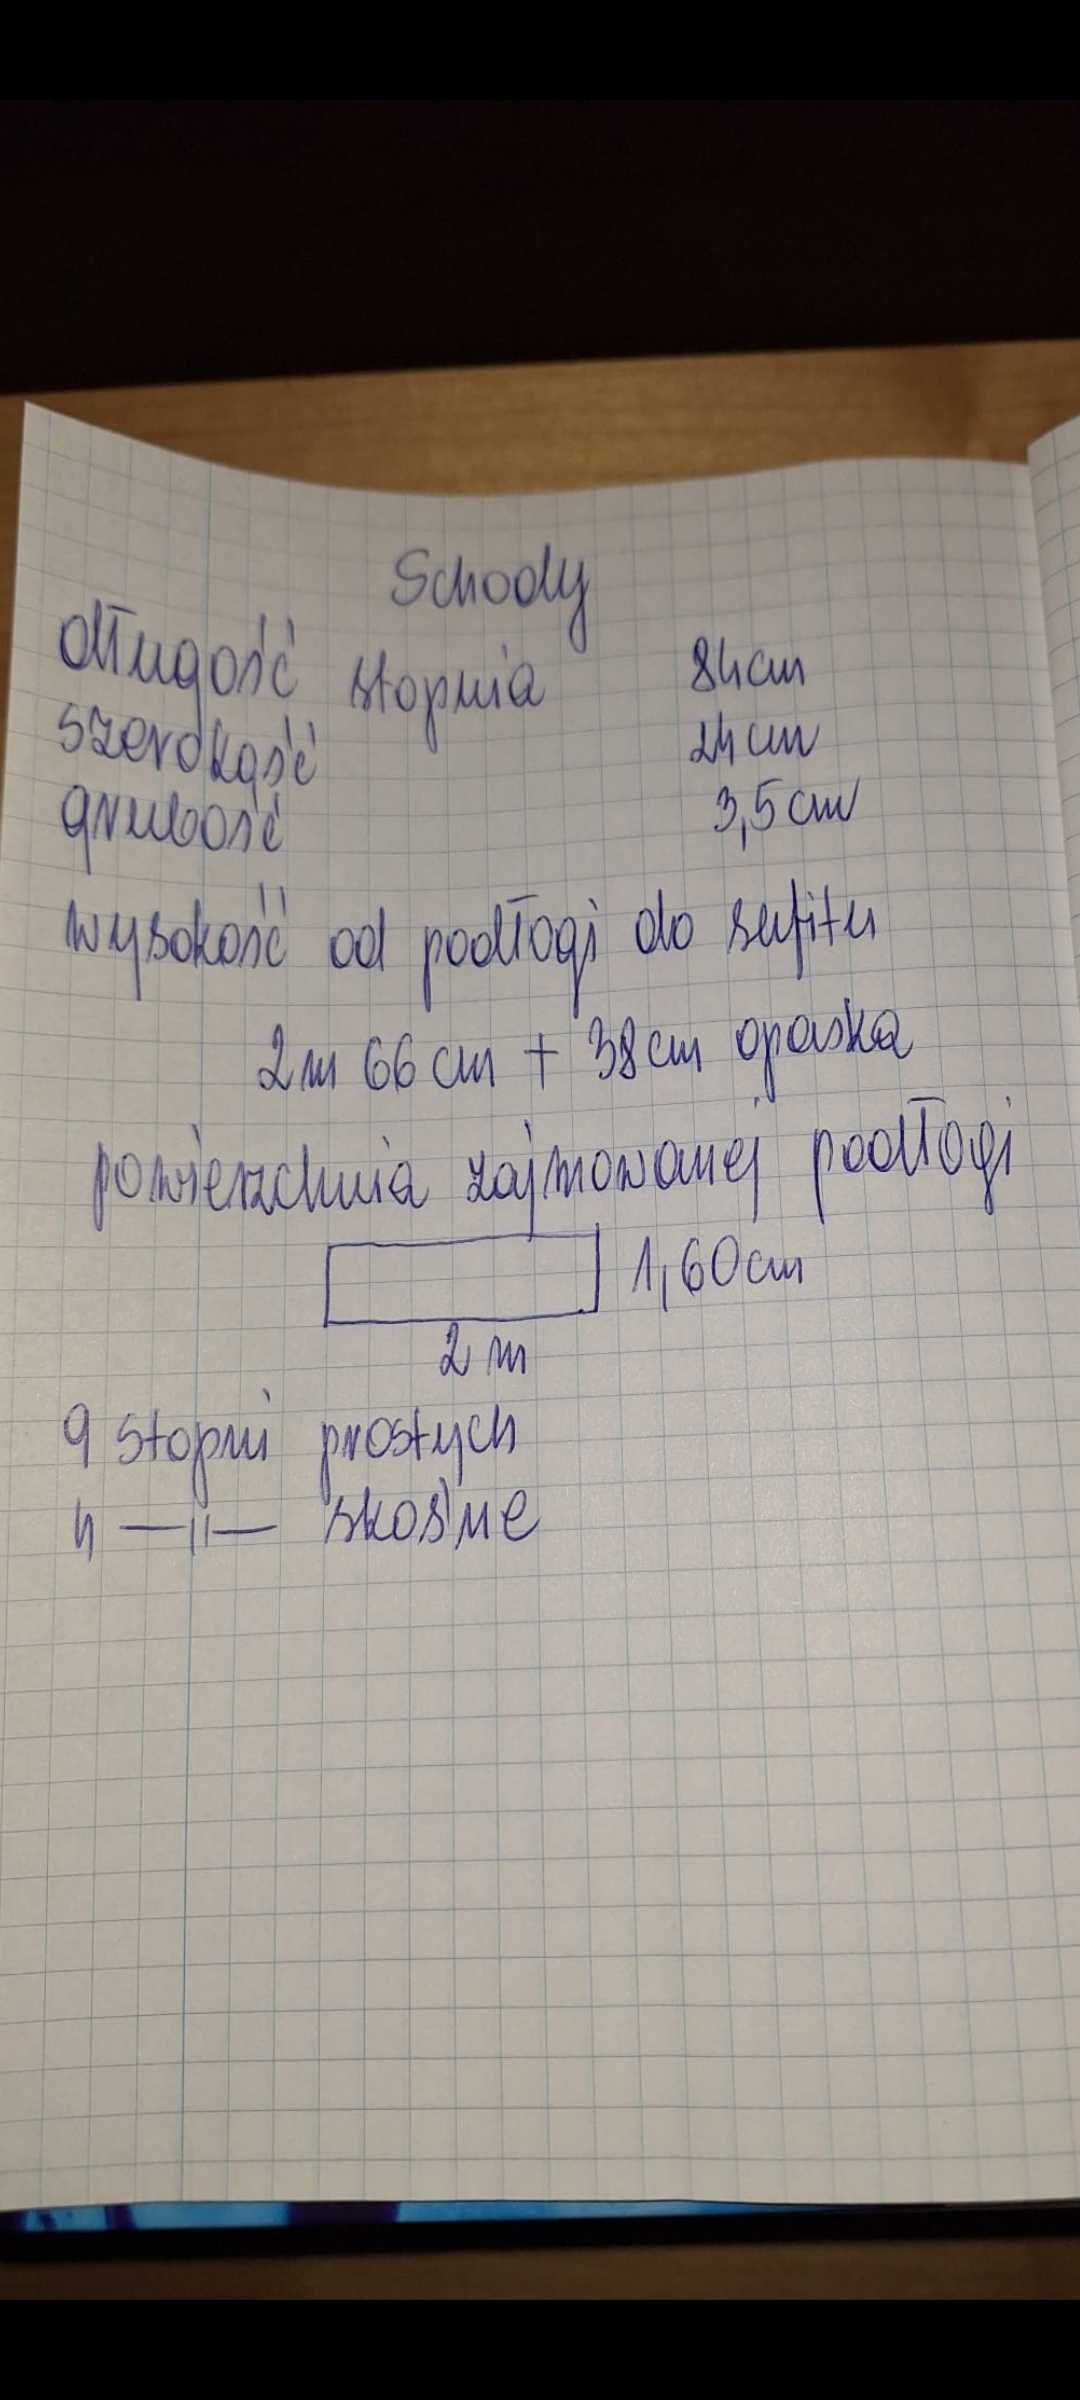 Schody
długość stopnia 84cm
szerokość 24cm
grubość 3,5cm
wysokość od podłogi do sufitu
2m 66cm + 38cm opaska
powierzchnia zajmowanej podłogi
1,60cm
2m
9 stopni prostych
4 —||— skośne